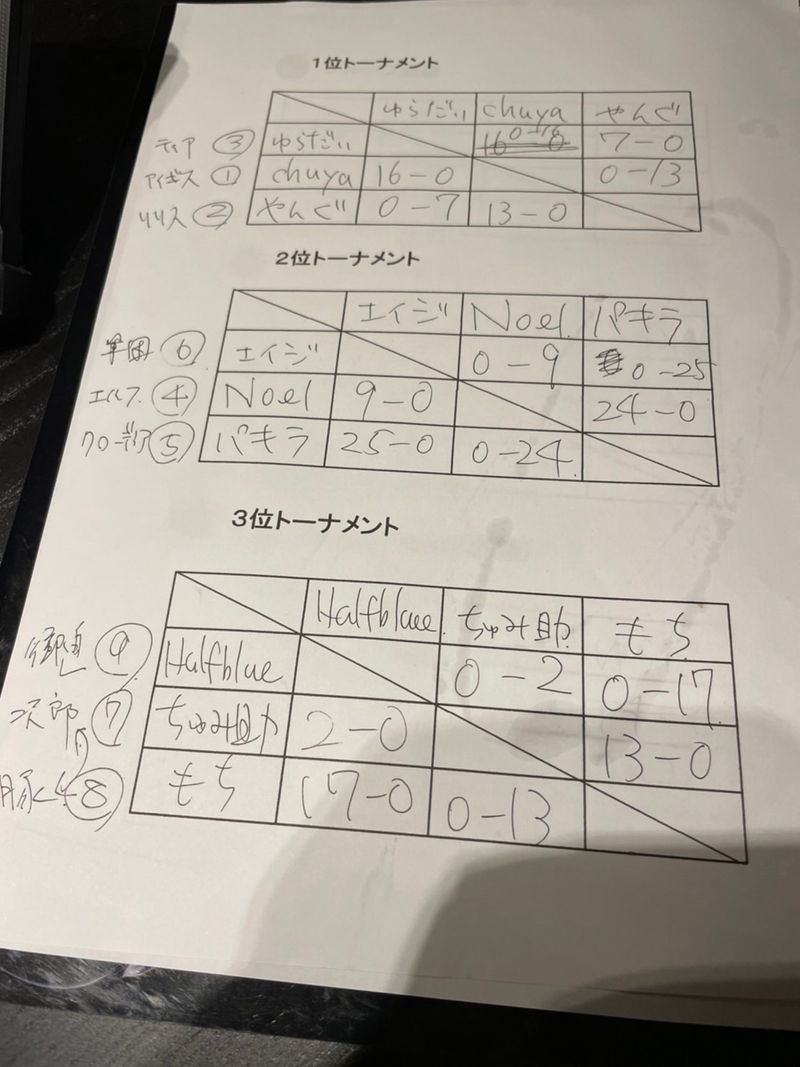 1位トーナメント
ゆらだい chuya やんぐ
ティア ③ ゆらだい 0-16 7-0
アイギス ① chuya 16-0 0-13
リリス ② やんぐ 0-7 13-0
2位トーナメント
エイジ Noel パキラ
⑥ エイジ 0-9 0-25
エルフ ④ Noel 9-0 24-0
クローディア ⑤ パキラ 25-0 0-24
3位トーナメント
Halfblaue ちゅみ助 もち
⑨ Halfblue 0-2 0-17
次郎 ⑦ ちゅみ助 2-0 13-0
⑧ もち 17-0 0-13